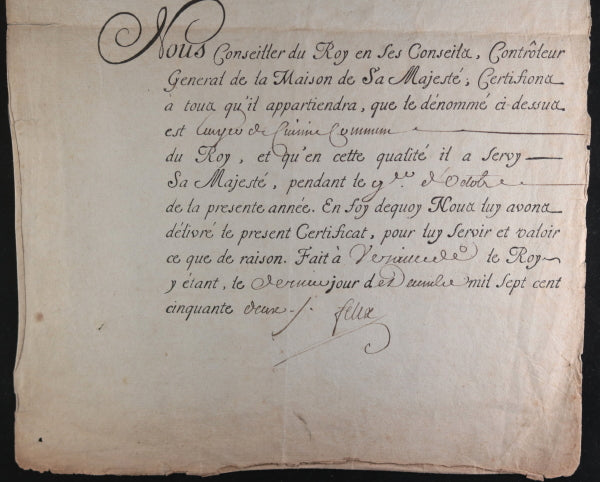 Nous Conseiller du Roy en ses Conseils, Contrôleur
General de la Maison de Sa Majesté, Certifions
à tous qu'il appartiendra, que le dénommé ci-dessus
est de Cuisine Commun
du Roy, et qu'en cette qualité il a servy
Sa Majesté, pendant le d'Octobre
de la presente année. En foy dequoy Nous luy avons
délivré le present Certificat, pour luy servir et valoir
ce que de raison. Fait à Versailles le Roy
y étant, le dernier jour de Decembre mil sept cent
cinquante deux ./. felix